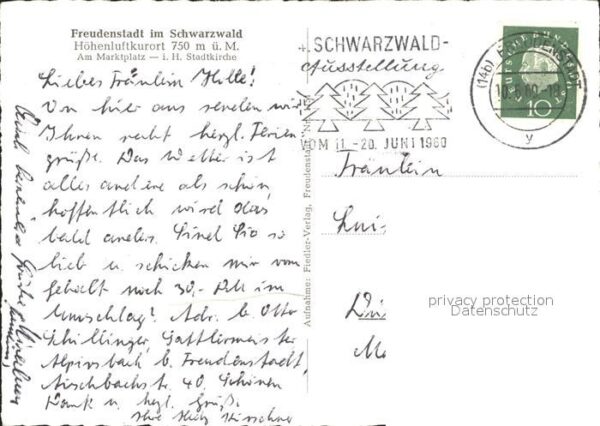 Freudenstadt im Schwarzwald
Höhenluftkurort 750 m ü. M.
Am Marktplatz — i. H. Stadtkirche
Liebes Fräulein Hille!
Von hier aus senden wir
Ihnen recht herzl. Ferien
grüße. Das Wetter ist
alles andere als schön,
hoffentlich wird das
bald anders. Sind Sie so
lieb u. schicken mir vom
Gehalt noch 30,- DM im
Umschlag! Adr. b. Otto
Schillinger, Sattlermeister
Alpirsbach b. Freudenstadt,
Aischbachstr. 40. Schönen
Dank u. herzl. Grüße.
Ihre
Aufnahme: Fiedler-Verlag, Freudenstadt
4. SCHWARZWALD-
Ausstellung
VOM 11.-20. JUNI 1960
(14b) FREUDENSTADT
y
DEUTSCHE BUNDESPOST
10
Fräulein
Lui
privacy protection
Datenschutz